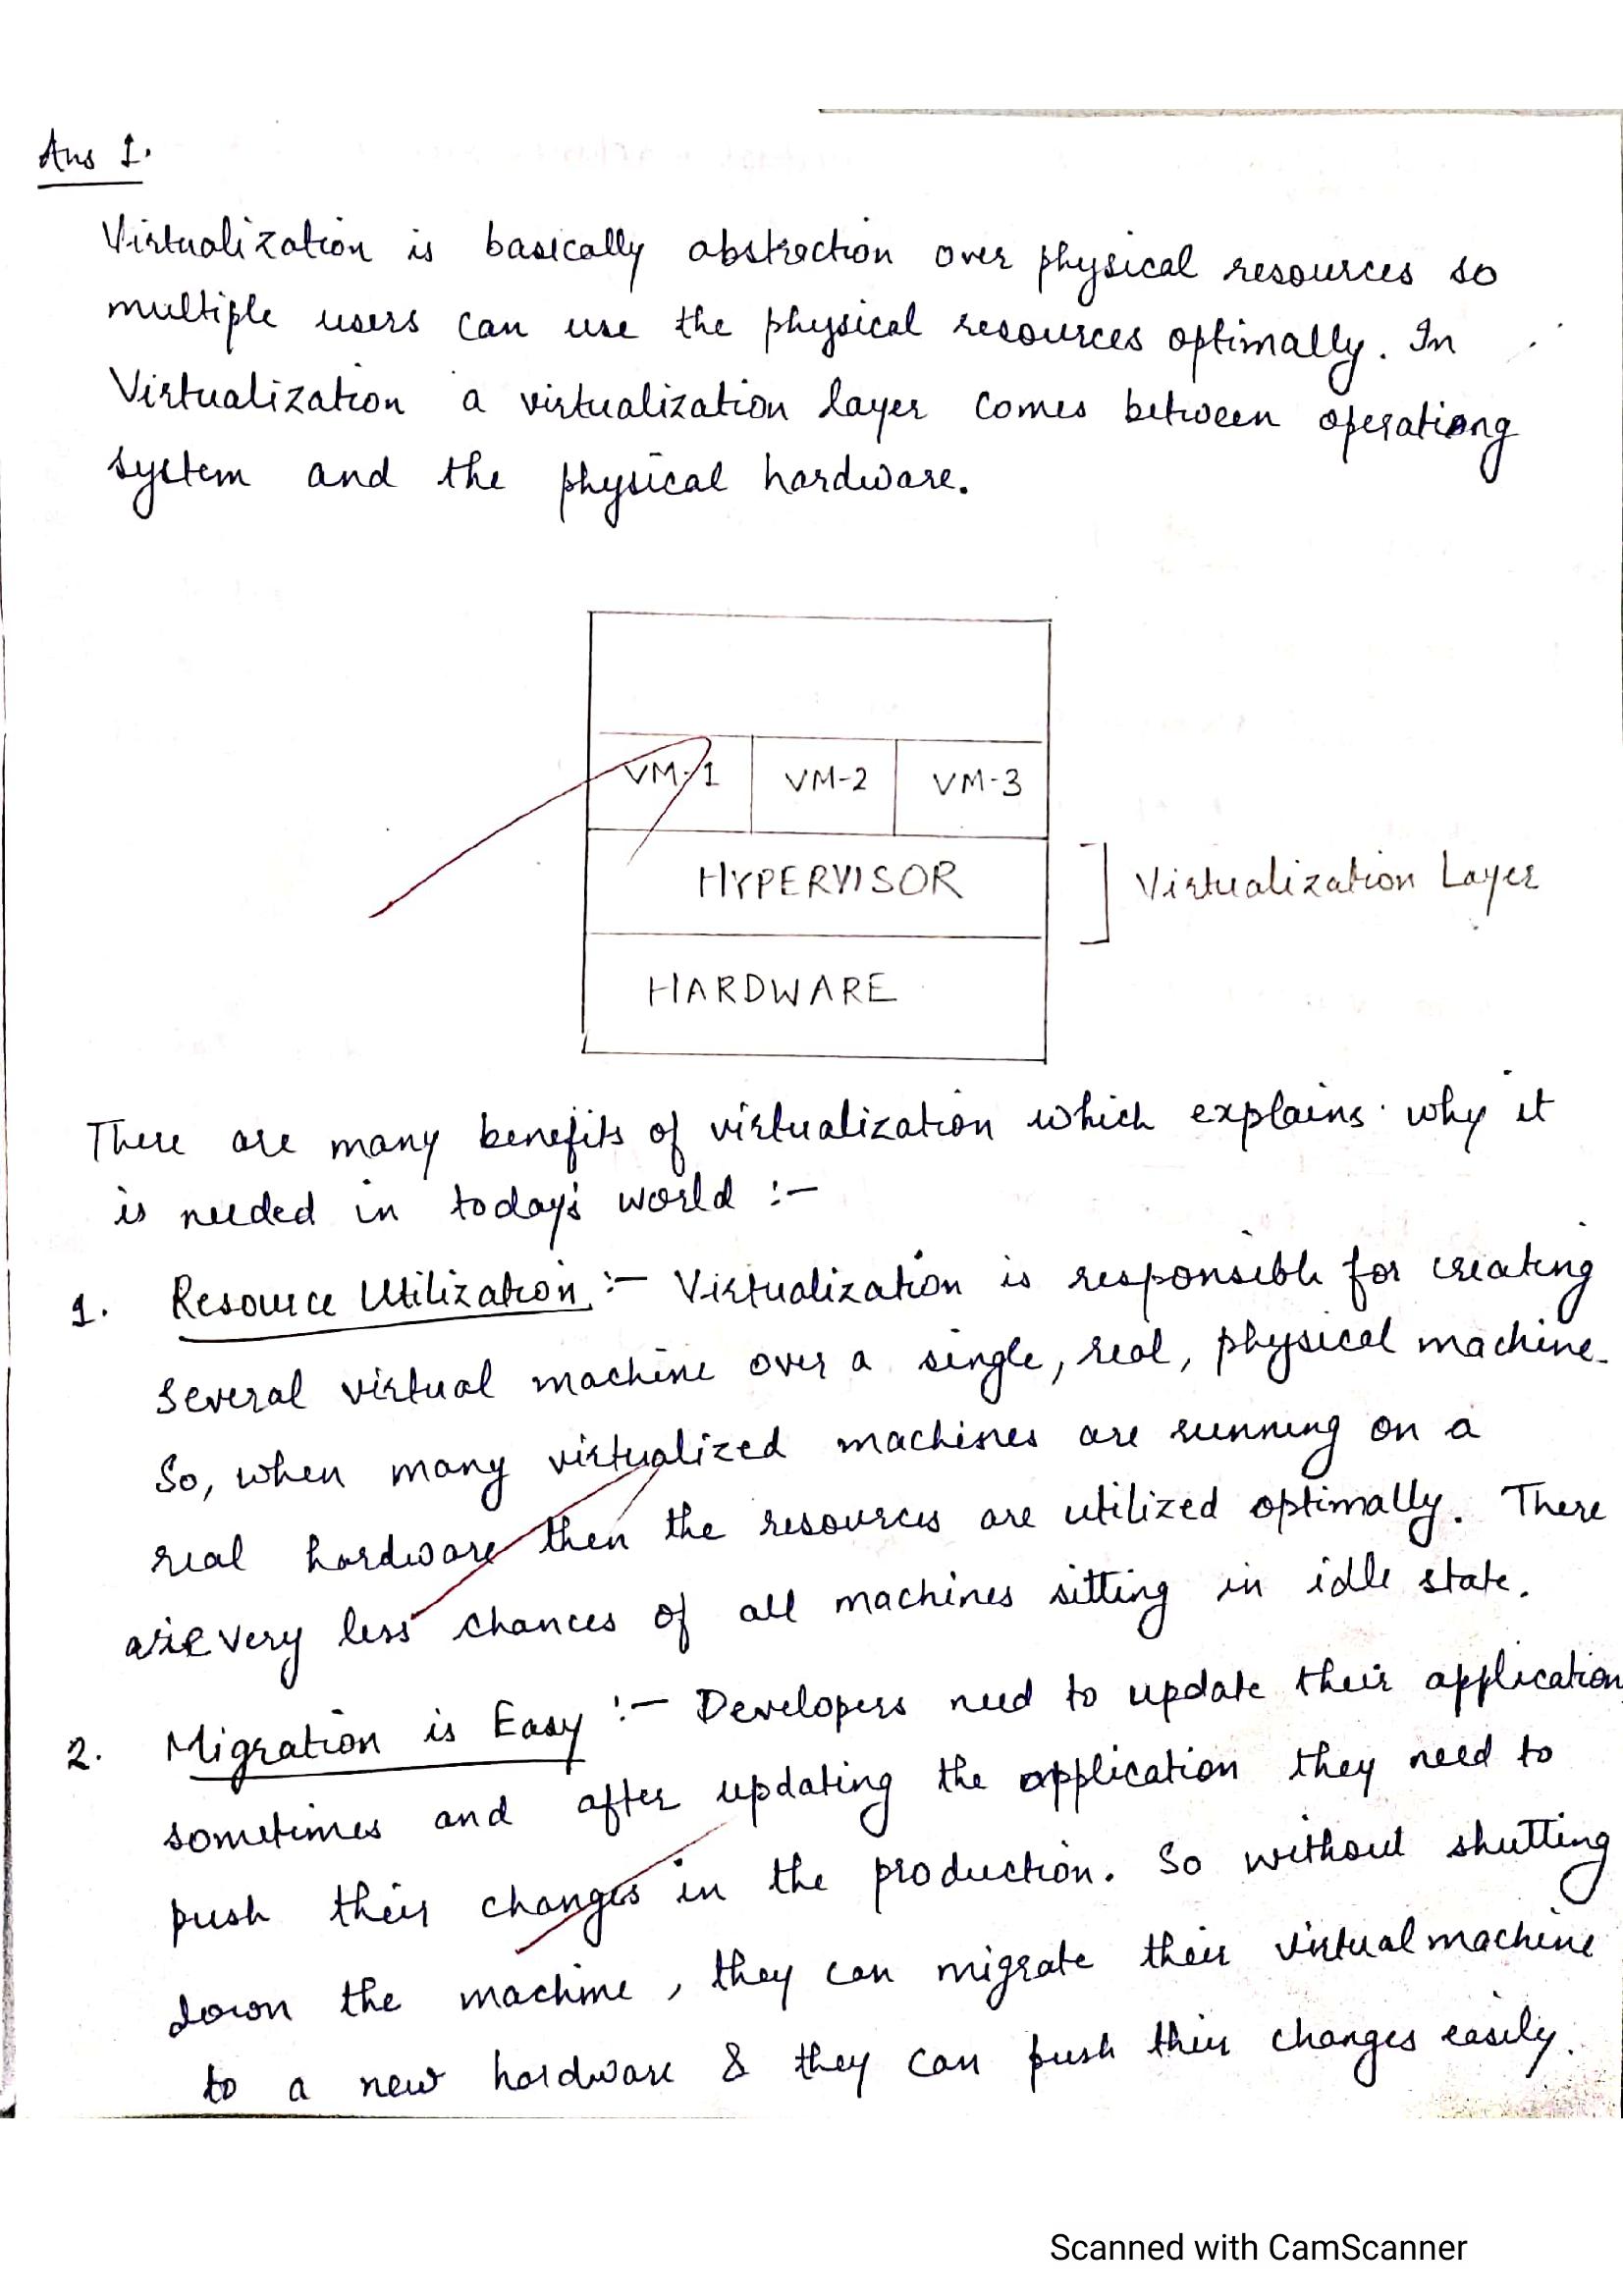 Ans 1.
Virtualization is basically abstraction over physical resources so
multiple users can use the physical resources optimally. In
Virtualization a virtualization layer comes between operationg
system and the physical hardware.
VM-1 VM-2 VM-3
HYPERVISOR
Virtualization Layer
HARDWARE
There are many benefits of virtualization which explains why it
is needed in today's world :-
1. Resource Utilization :- Virtualization is responsible for creating
several virtual machine over a single, real, physical machine.
So, when many virtualized machines are running on a
real hardware then the resources are utilized optimally. There
are very less chances of all machines sitting in idle state.
2. Migration is Easy :- Developers need to update their application
sometimes and after updating the application they need to
push their changes in the production. So without shutting
down the machine, they can migrate their virtual machine
to a new hardware & they can push their changes easily.
Scanned with CamScanner